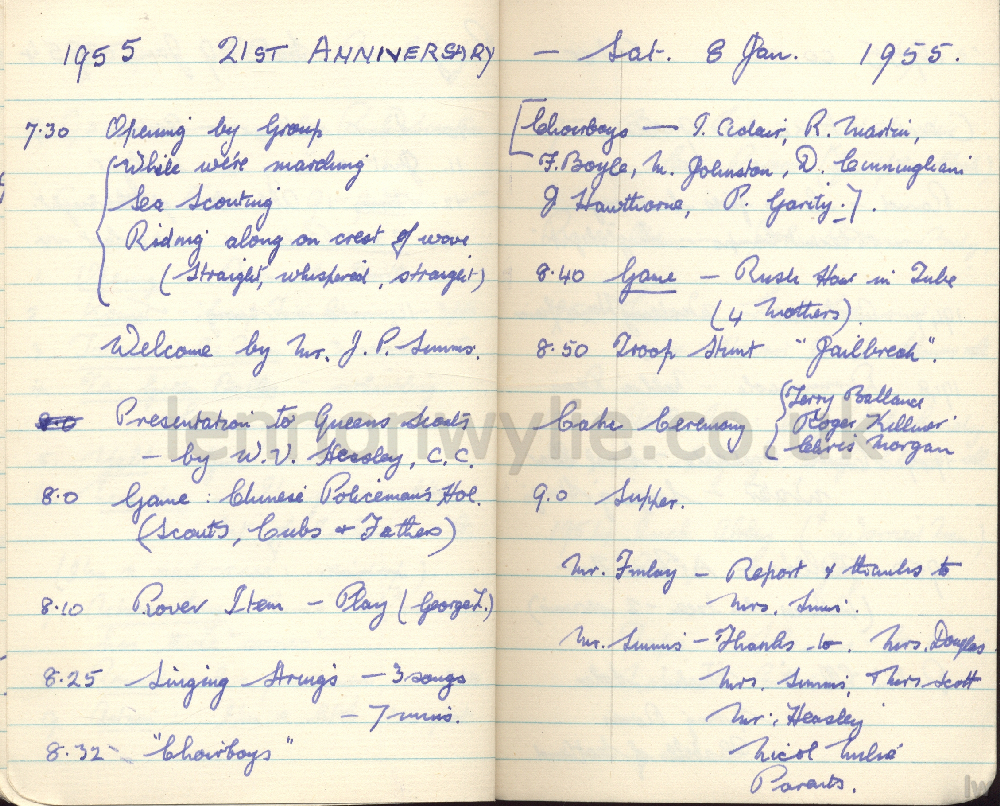 1955 21ST ANNIVERSARY — Sat. 8 Jan. 1955.
7.30 Opening by Group
While we're marching
Sea Scouting
Riding along on crest of wave
(Straight, whispered, straight)
Welcome by Mr. J. P. Simms.
8.0 Presentation to Queens Scouts
— by W. V. Heasley, C.C.
8.0 Game: Chinese Policeman's Hol.
(Scouts, Cubs & Fathers)
8.10 Rover Item — Play (George L.)
8.25 Singing — 3 songs
— 7 mins.
8.32 - "Choirboys"
[Choirboys — T. Adair, R. Martin,
F. Boyle, M. Johnston, D. Cunningham
J Hawthorne, P. Garity.].
8.40 Game — Rush Hour in Tube
(4 Mothers).
8.50 Troop Stunt "Jailbreak".
Cake Ceremony { Terry Ballance
Roger Killner
Chris Morgan
9.0 Supper.
Mr. Finlay — Report & thanks to
Mrs. Simms.
Mr. Simms — Thanks to. Mrs. Douglas
Mrs. Simms, Mrs. Scott
Mr. Heasley
Nicol
Parents.
lennonwylie.co.uk
lw